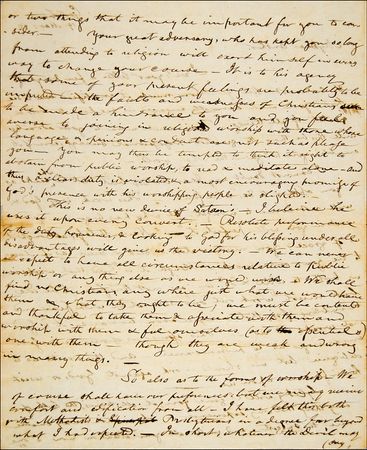 or two things that it may be important for you to con-
sider— Your great adversary, who has kept you so long
from attending to religion will exert himself in every
way to change your course — It is to his agency
that some of your present feelings are probably to be
imputed — the faults and weaknesses of Christians
to be made a hindrance to you and you feel
averse to joining in religious worship with those whose
language, opinions & conduct are not such as please
you — You may thus be tempted to think it right to
abstain from public worship, to read & meditate alone — and
thus a clear duty is violated & a most encouraging promise of
God's presence with his worshipping people is slighted.
This is no new device of Satan — I believe he
uses it upon every convert — Resolute performance
of the duty, however, & looking to God for his blessing under all
disadvantages will give us the victory. — We can never
expect to have all circumstances relative to Public
worship or any thing else as we would wish. We shall
find no Christians any where just what we would have
them & what they ought to be — we must be content
and thankful to take them & associate with them and
worship with them & feel ourselves (as to essentials)
one with them — though they are weak and wrong
in many things. —
So also as to the forms of worship — We
of course shall have our preferences, but we may receive
comfort and edification from all — I have felt this both
with Methodists & Presbyterians in a degree far beyond
what I had expected. — In short, whatever the Devil may
(say)